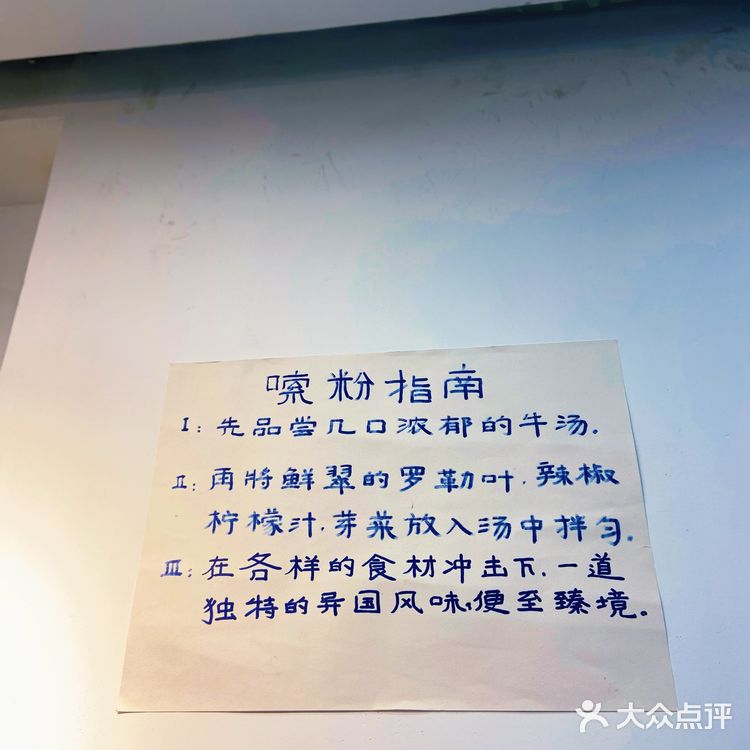 嗦粉指南
I：先品尝几口浓郁的牛汤.
II：再将鲜翠的罗勒叶.辣椒
柠檬汁.芽菜放入汤中拌匀.
III：在各样的食材冲击下.一道
独特的异国风味,便至臻境。
大众点评